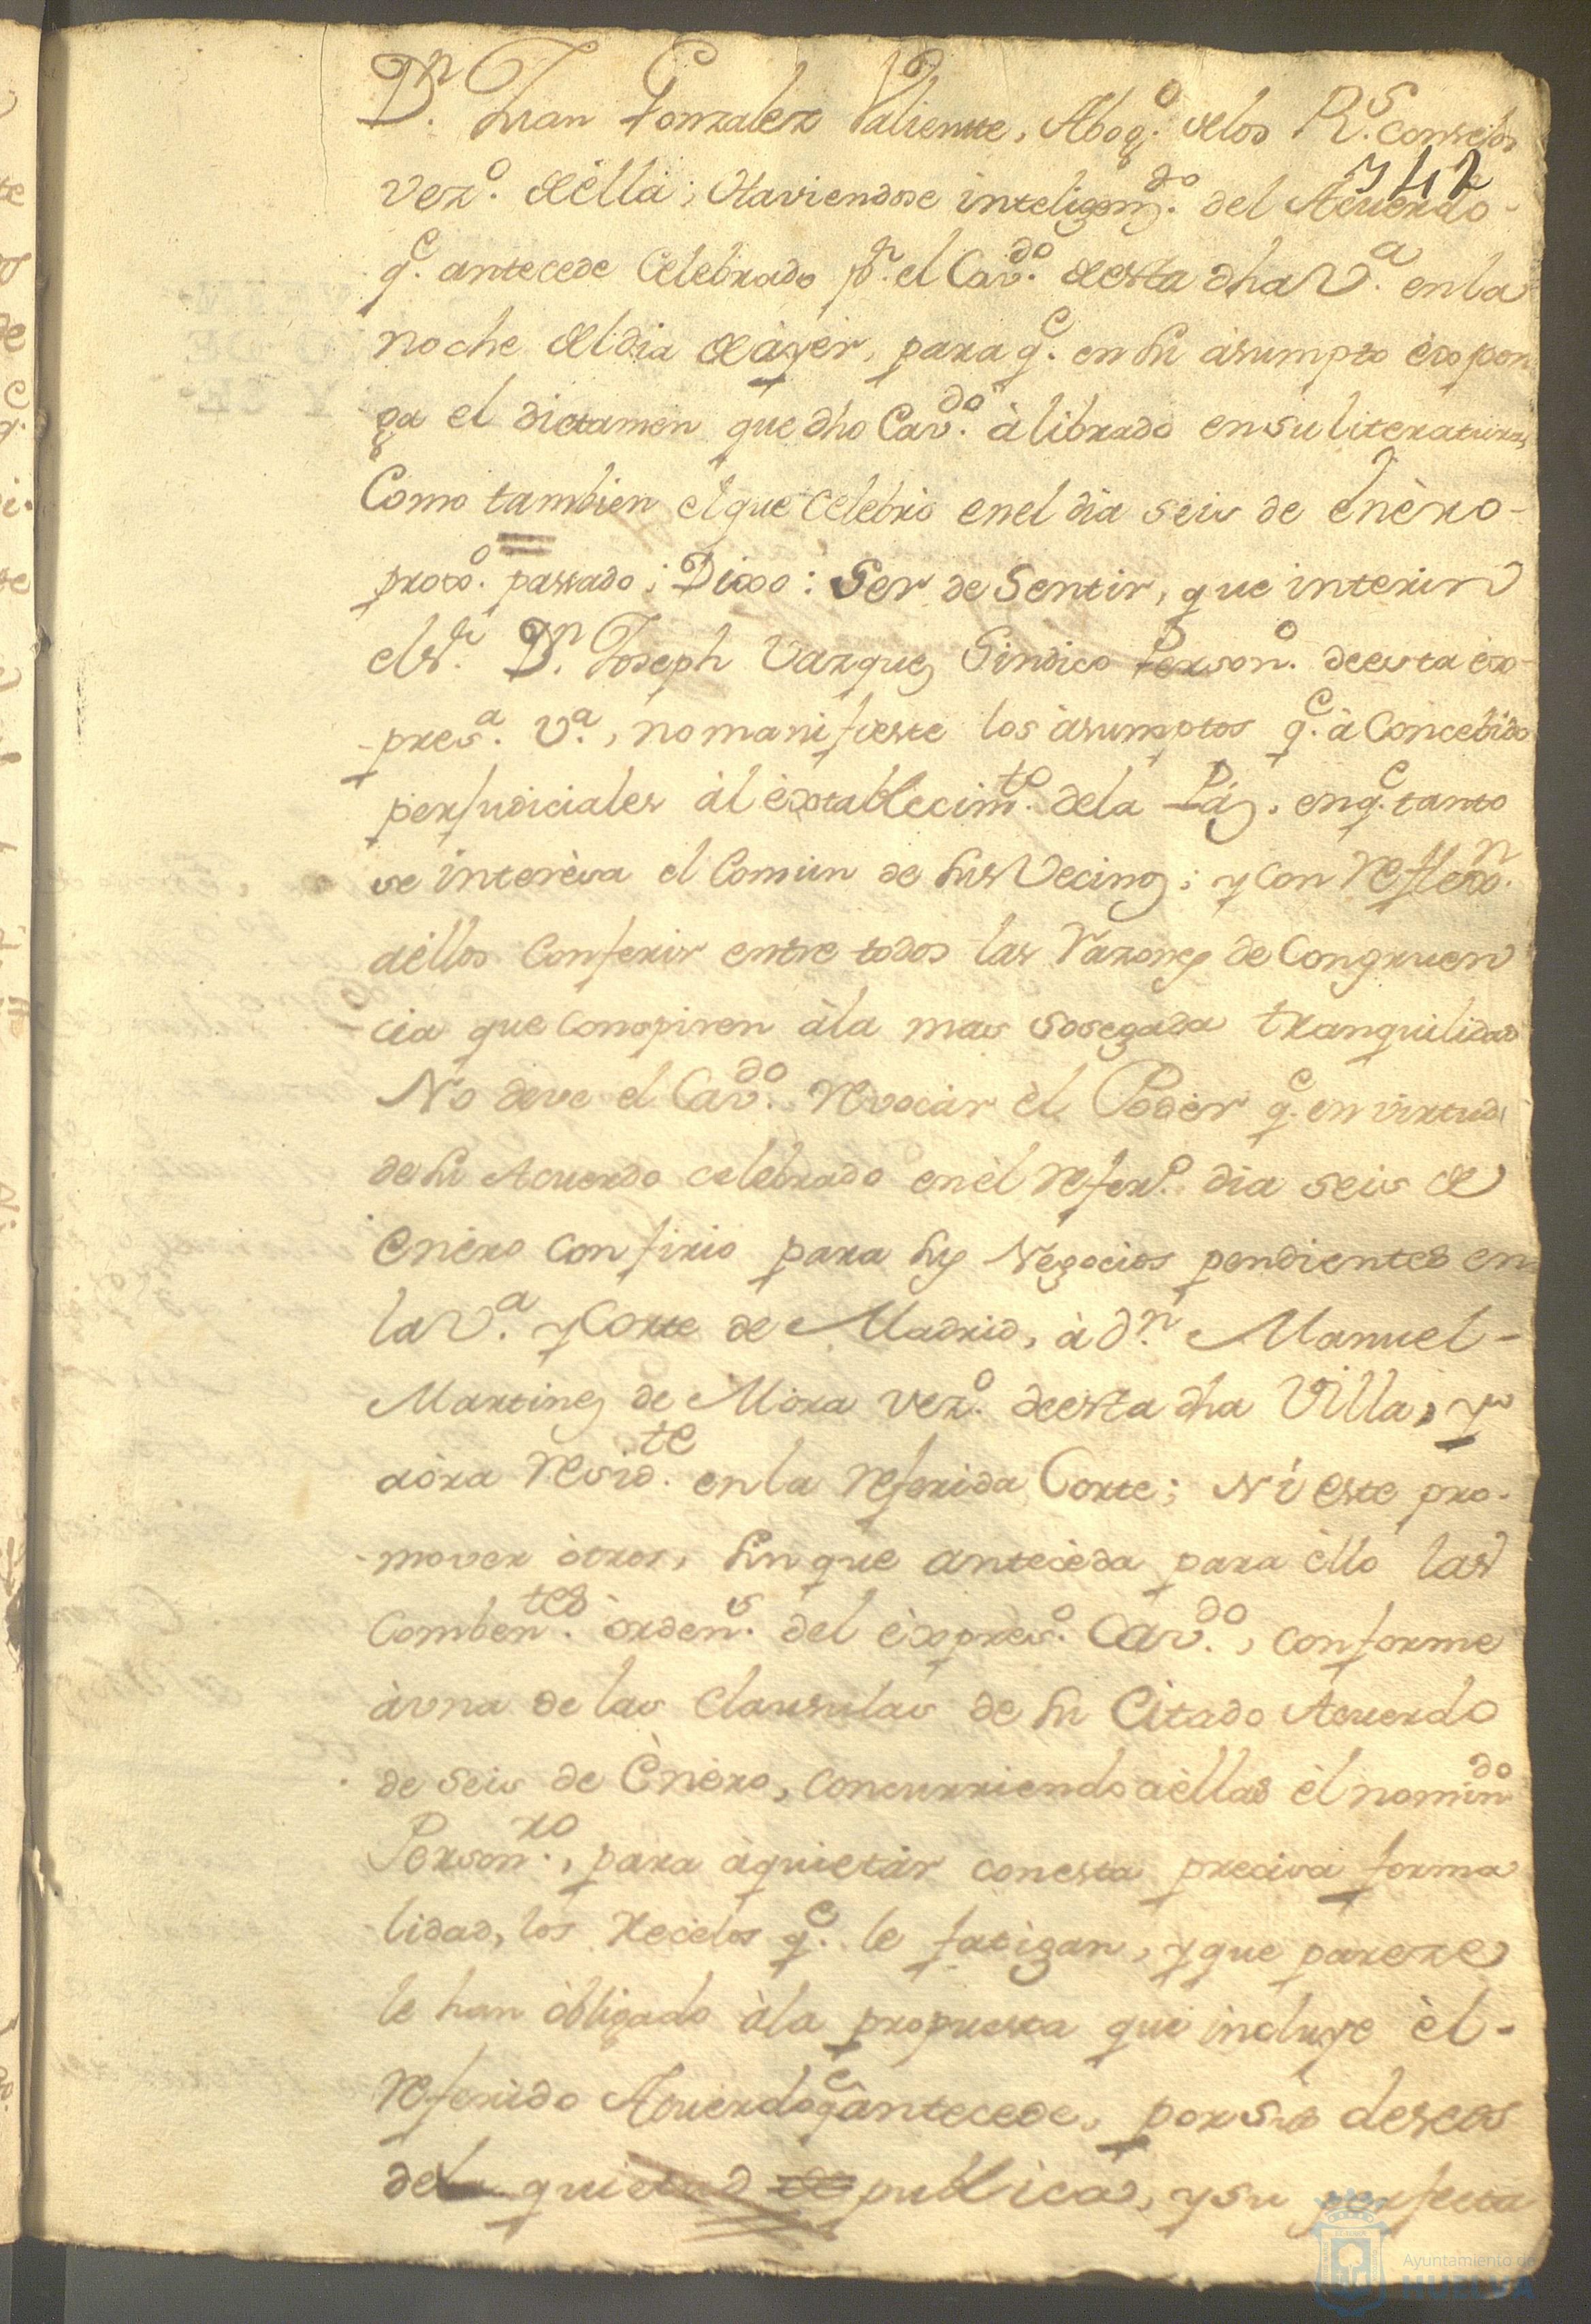 Dn. Juan Gonzalez Valiente, Abogo. de los Rs. consejos
342
vezo. de ella; Haviendose inteligendo. del Acuerdo-
qe. antecede Celebrado pr. el Cavdo. de esta dha Va. en la
noche del dia de ayer, para qe. en su asumpto expon
ga el dictamen que dho Cavdo. à librado en su literatura,
Como tambien el que Celebrò en el dia seis de Enèro-
proxo. passado; Dixo: Ser de Sentir, que interin
el sr. Dn. Joseph Vazquez Sindico Persono. de esta ex-
-presa. Va., no manifieste los àsumptos qe. à Concebido
perjudiciales àl èxtablecimto. de la Paz, en qe. tanto
se interèsa el Comun de sus Vecinos; y con reflexn.
a èllos Conferir entre todos las razones de Congruen
cia que conspiren àla mas sosegada tranquilidad
No deve el Cavdo. revocàr èl Podèr qe. en virtud
de su Acuerdo celebrado en èl refero. dia seis de
Enèro confirio para sus Negocios pendientes en
la Va. y Corte de Madrid, à dn. Manuel-
Martinez de Mora vezo. de esta dha Villa, y
aòra residte. en la referida Corte; Ni este pro-
-mover òtros, sin que antecèda para èllo las
Combentes. òrdens. del èxpreso. Cavdo., conforme
àuna de las Clausulas de su Citado Acuerdo
de seis de Ènèro, concurriendo a èllas èl nomindo.
Personro., para àquietàr con esta precisa forma
lidad, los recelos qe. le fatigan, y que pareze
le han òbligado àla propuesta que incluye èl-
referido Acuerdo qe antecede, por sus deseos
de la quietud publica, y su perfecta
Ayuntamiento de
HUELVA